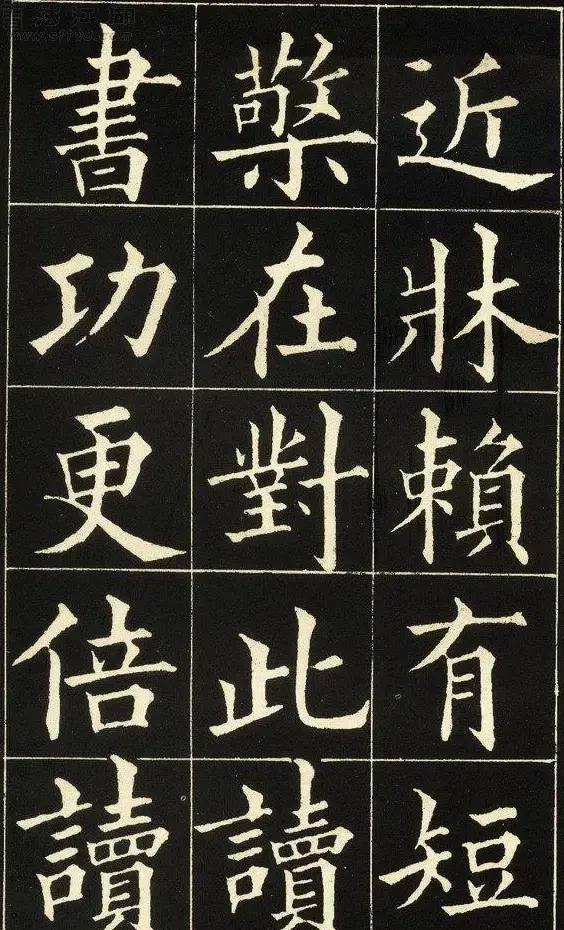 近牀賴有短
檠在對此讀
書功更倍讀